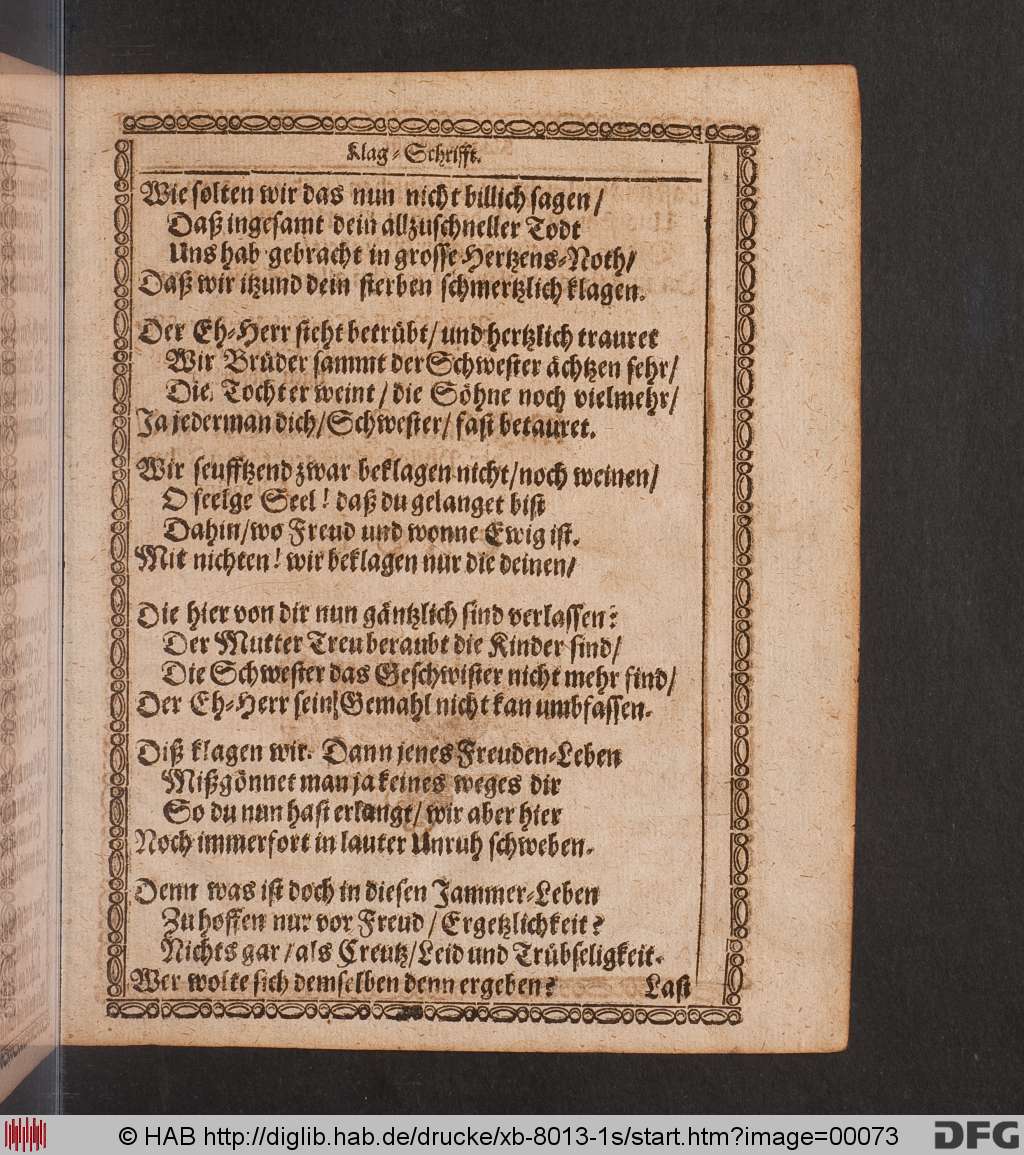 Klag-Schrifft.
Wie solten wir das nun nicht billich sagen/
Daß ingesamt dein allzuschneller Todt
Uns hab gebracht in grosse Hertzens-Noth/
Daß wir itzund dein sterben schmertzlich klagen.
Der Eh-Herr sieht betrübt/ und hertzlich trauret
Wir Brüder sammt der Schwester ächtzen sehr/
Die Tochter weint/ die Söhne noch vielmehr/
Ja jederman dich/ Schwester/ fast betauret.
Wir seufftzend zwar beklagen nicht/ noch weinen/
O seelge Seel! daß du gelanget bist
Dahin/ wo Freud und wonne Ewig ist.
Mit nichten! wir beklagen nur die deinen/
Die hier von dir nun gäntzlich sind verlassen:
Der Mutter Treu beraubt die Kinder sind/
Die Schwester das Geschwister nicht mehr find/
Der Eh-Herr sein Gemahl nicht kan umbfassen.
Diß klagen wir. Dann jenes Freuden-Leben
Mißgönnet man ja keines weges dir
So du nun hast erlangt/ wir aber hier
Noch immerfort in lauter Unruh schweben.
Denn was ist doch in diesen Jammer-Leben
Zu hoffen nur vor Freud/ Ergetzlichkeit?
Nichts gar/ als Creutz/ Leid und Trübseligkeit.
Wer wolte sich demselben denn ergeben?
Last
© HAB http://diglib.hab.de/drucke/xb-8013-1s/start.htm?image=00073
DFG